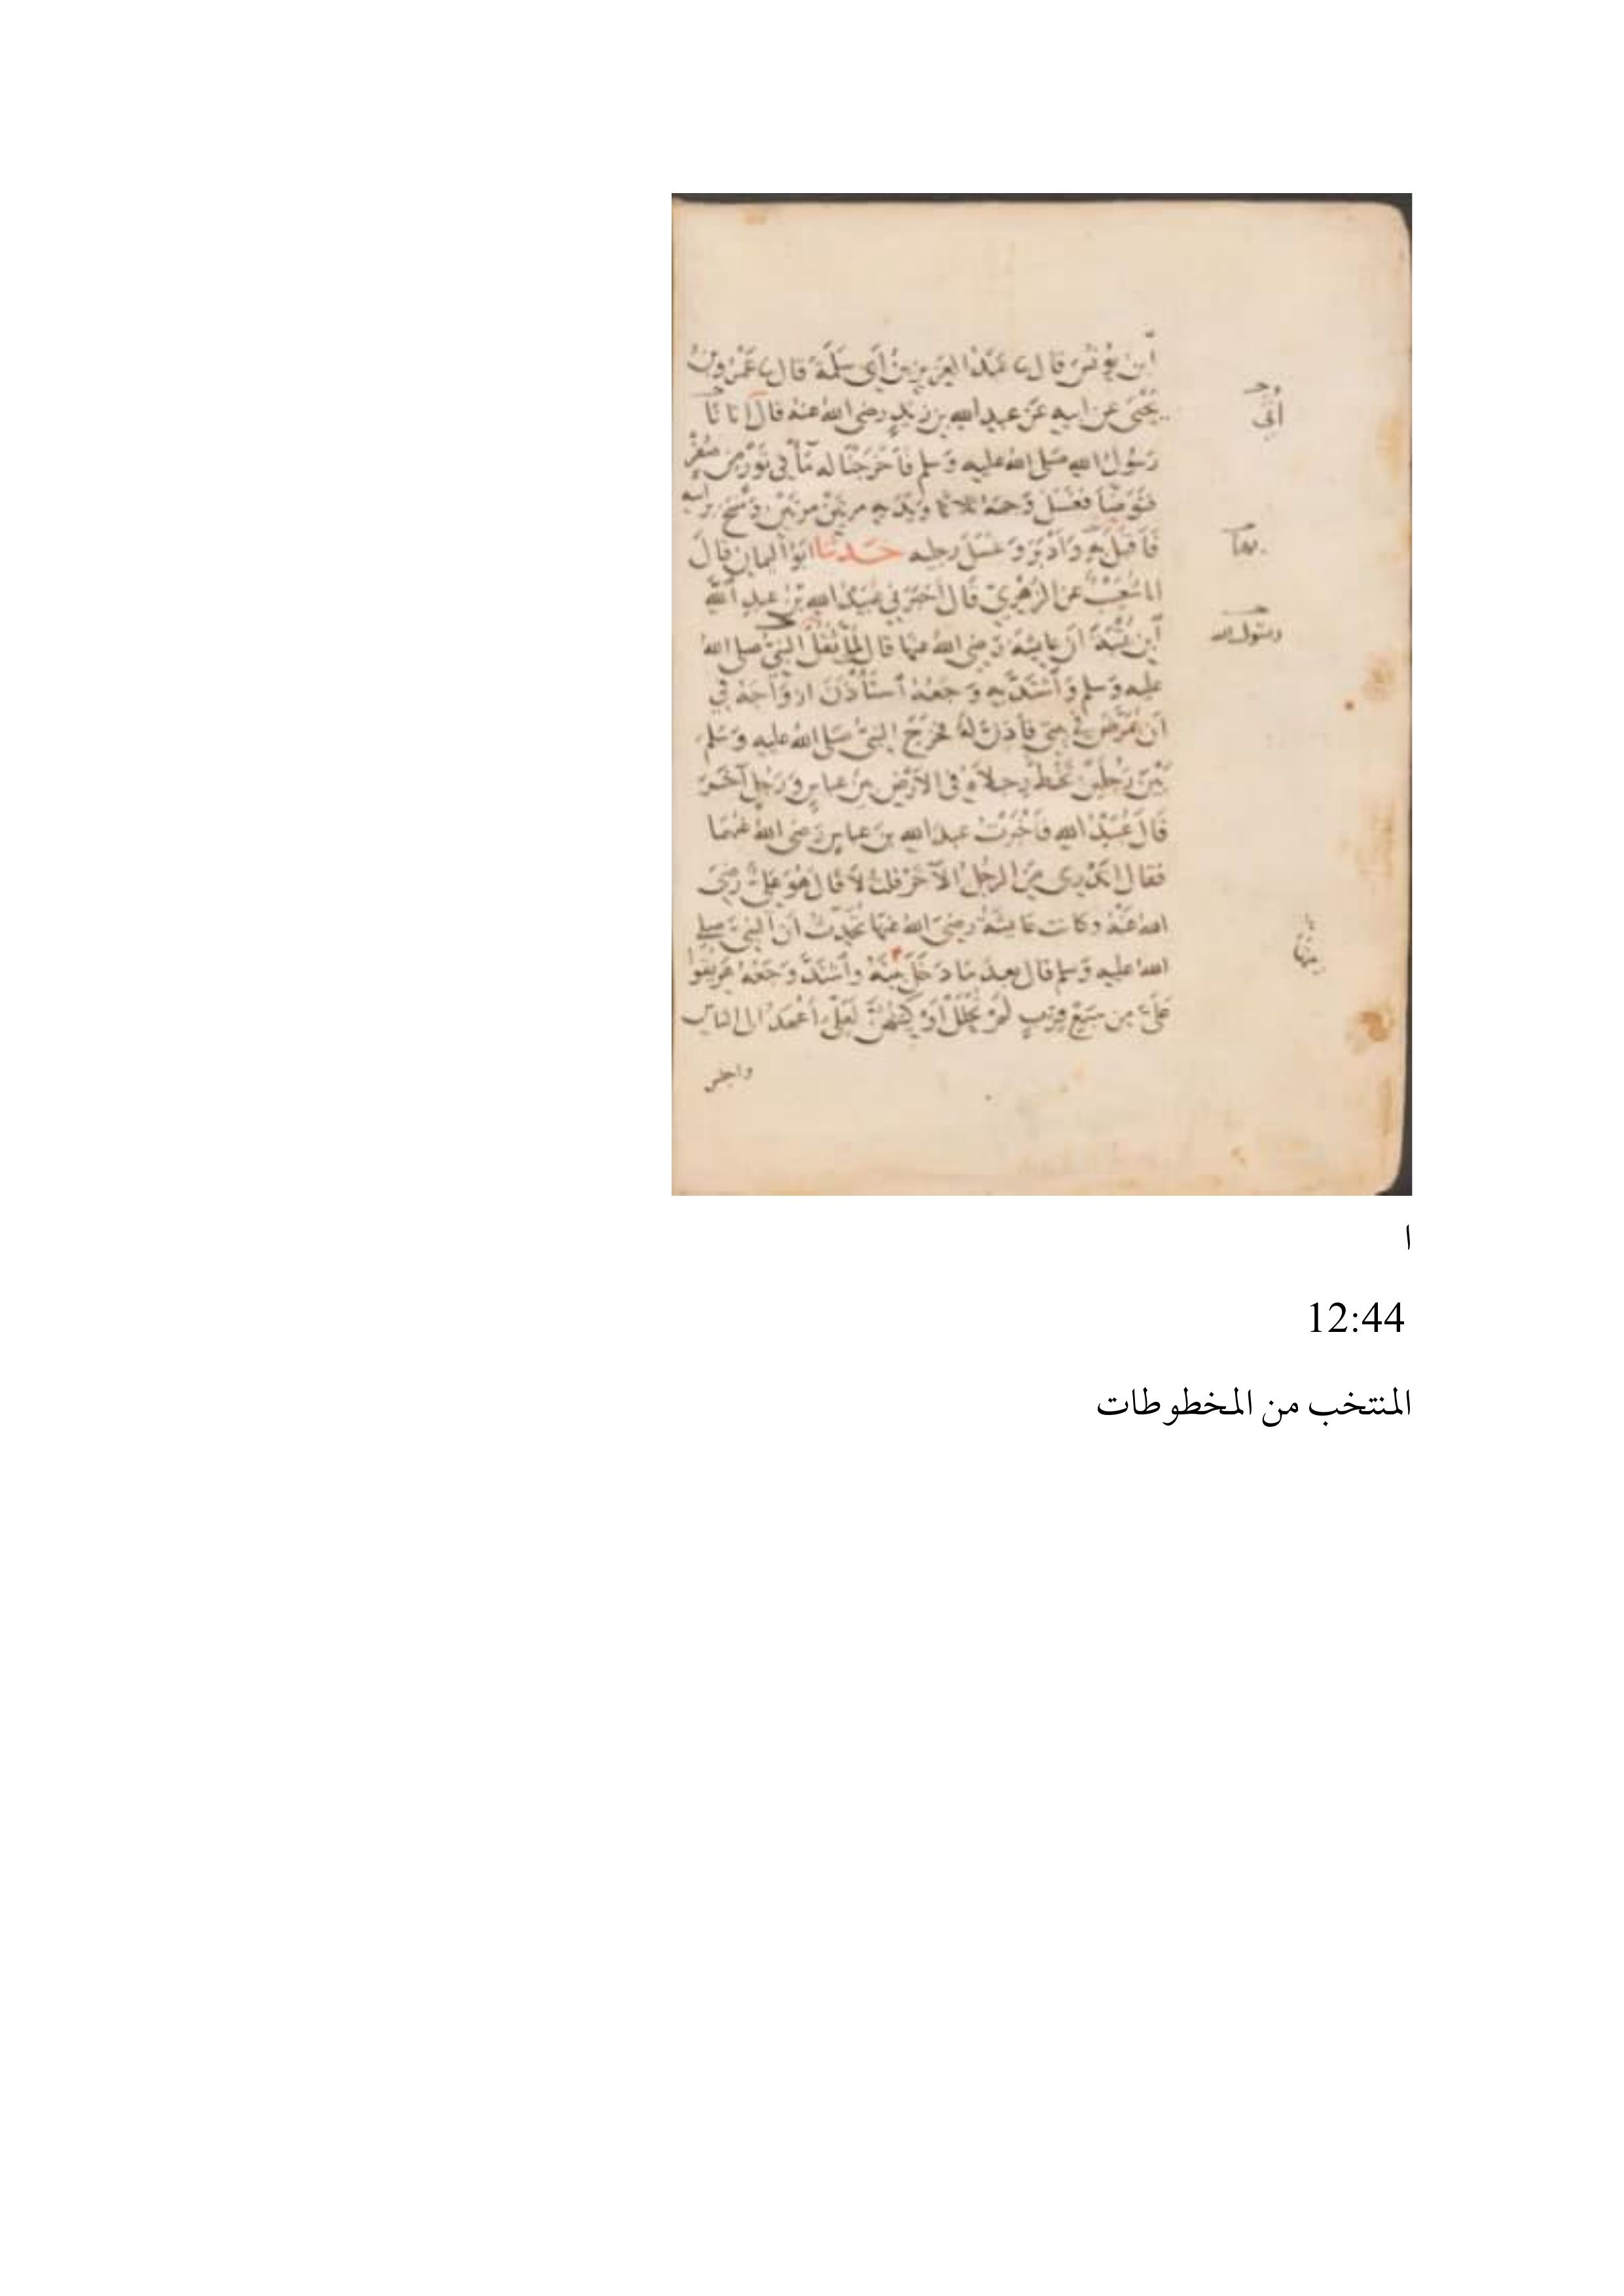 ابن يونس قال ثنا عبد العزيز بن أبي سلمة قال ثنا عمرو بن
يحيى عن ابيه عن عبد الله بن زيد رضي الله عنه قال اتانا
رسول الله صلى الله عليه وسلم فأخرجنا له مآء في تور من صفر
فتوضأ فغسل وجهه ثلاثا ويديه مرتين مرتين ومسح براسه
فأقبل به وأدبر وغسل رجليه حدثنا ابو اليمان قال
انا شعيب عن الزهري قال اخبرني عبيد الله بن عبد الله
ابن عتبة ان عايشة رضي الله عنها قالت لما ثقل النبي صلى الله
عليه وسلم وأشتد به وجعه أستأذن ازواجه في
أن يمرض في بيتي فأذن له فخرج النبي صلى الله عليه وسلم
بين رجلين تخط رجلاه في الارض بين عباس ورجل آخر
قال عبيد الله فأخبرت عبد الله بن عباس رضي الله عنهما
فقال اتدري من الرجل الآخر قلت لا قال هو علي رضي
الله عنه وكانت عايشة رضي الله عنها تحدث أن النبي صلى
الله عليه وسلم قال بعد ما دخل بيته وأشتد وجعه هريقوا
علي من سبع قرب لم تحلل أوكيتهن لعلي أعهد الى الناس
واجلس
أتى
رسول الله
بيتها
ا
12:44
المنتخب من المخطوطات